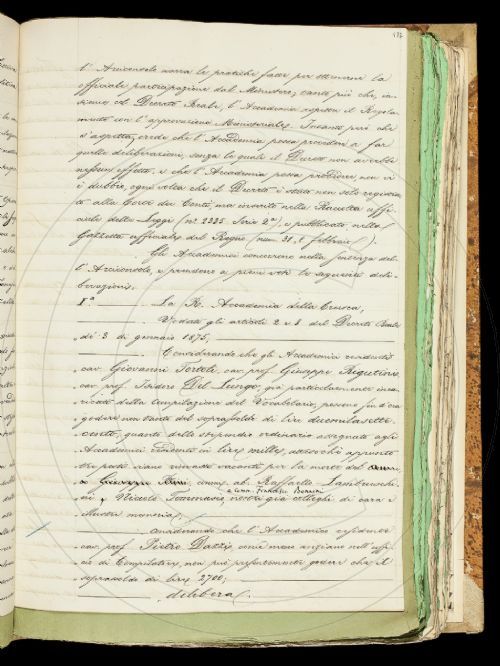 l'Arciconsolo narra le pratiche fatte per ottenere la
officiale partecipazione dal Ministero; tanto più che, in-
sieme al Decreto Reale, l'Accademia aspetta il Regola-
mento con l'approvazione Ministeriale. Intanto però che
s'aspetta, crede che l'Accademia possa procedere a far
quelle deliberazioni, senza le quali il Decreto non avrebbe
nessun effetto; e che l'Accademia possa procedere, non vi
è dubbio, ogni volta che il Decreto è stato non solo registra-
to alla Corte dei Conti, ma inserito nella Raccolta uffi-
ciale delle Leggi (n.º 2325 Serie 2ª), e pubblicato nella
Gazzetta ufficiale del Regno (num. 31, 8 febbraio).
Gli Accademici concorrono nella sentenza del-
l'Arciconsolo, e prendono a pieni voti le seguenti deli-
berazioni.
Iª La R. Accademia della Crusca,
Veduti gli articoli 2 e 8 del Decreto Reale
di 3 di gennaio 1875,
Considerando che gli Accademici residenti
cav. Giovanni Tortoli, cav. prof. Giuseppe Rigutini,
cav. prof. Isidoro Del Lungo, già particolarmente inca-
ricati della Compilazione del Vocabolario, possono fin d'ora
godere non tanto del soprassoldo di lire duemilasette-
cento, quanto dello stipendio ordinario assegnato agli
Accademici residenti in lire mille, attesochè appunto
tre posti siano rimasti vacanti per la morte del
comm. ab. Raffaello Lambruschi-
e comm. Francesco Bonaini
ni, Niccolò Tommaseo, nostri già colleghi di cara e
illustre memoria;
Considerando che l'Accademico residente
cav. prof. Pietro Dazzi, come meno anziano nell'uffi-
cio di Compilatore, non può presentemente godere che il
soprassoldo di lire 2700;
delibera: